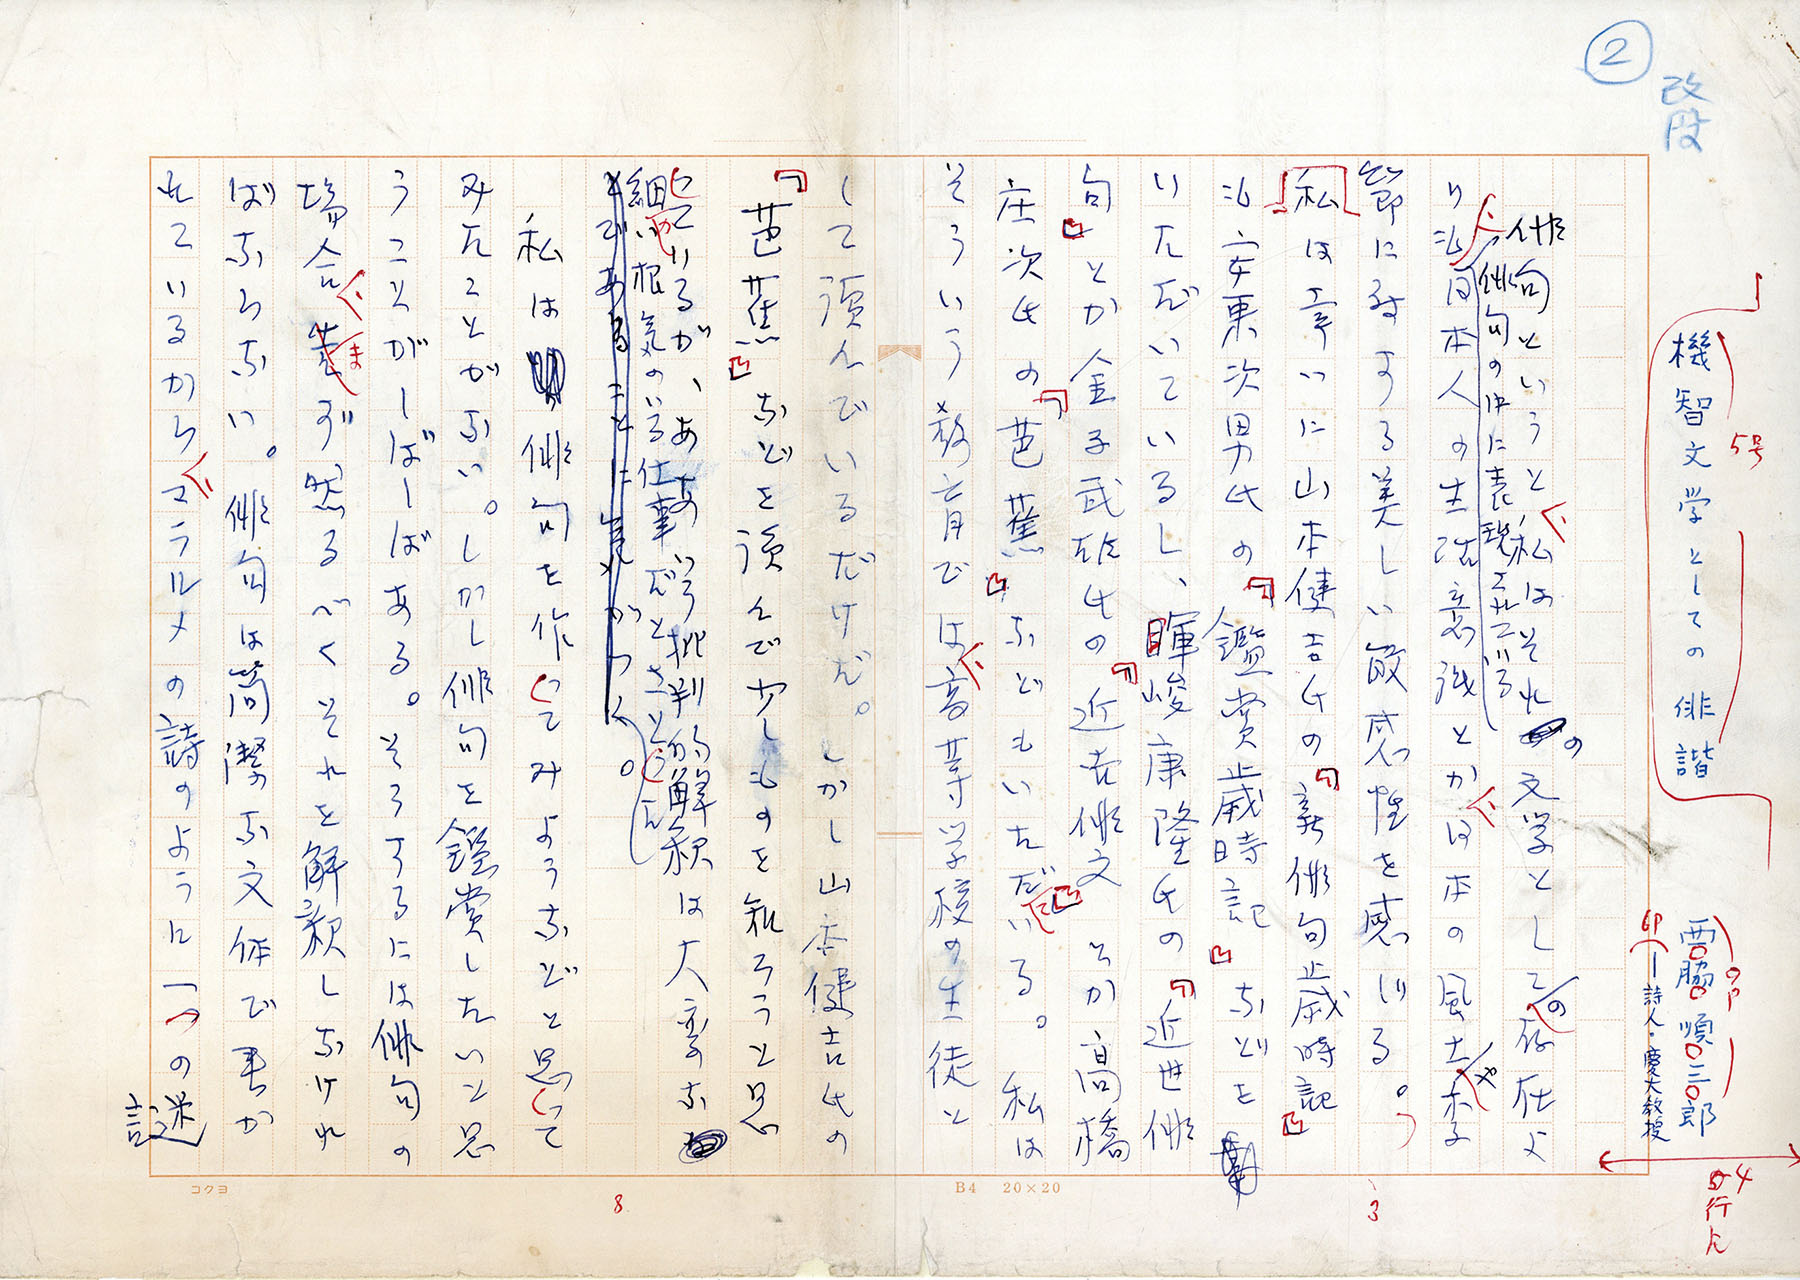 ②
改段
機智文学としての俳諧
5号
西脇順三郎
―詩人・慶大教授
4行人
俳句というと私はそれの文学としての存在よ
り俳句の中に表現されている
日本人の生活意識とか日本の風土や季
節に対する美しい敏感性を感じる。
私は幸いに山本健吉氏の『新俳句歳時記』
安東次男氏の『鑑賞歳時記』などを
いただいているし、暉峻康隆氏の『近世俳
句』とか金子武雄氏の『近世俳文』とか高橋
庄次氏の『芭蕉』などもいただいている。私は
そういう教育では高等学校の生徒と
して読んでいるだけだ。しかし山本健吉氏の
『芭蕉』などを読んで少しものを知ろうと思
っているが、ああいう批判的解釈は大変な
細かい根気のいる仕事だと
であることに気がつく。
私は俳句を作ってみようなどと思って
みたことがない。しかし俳句を鑑賞したいと思
うことがしばしばある。そうするには俳句の
場合まず然るべくそれを解釈しなけれ
ばならない。俳句は簡潔な文体で書か
れているからマラルメの詩のように一つの謎
コクヨ
B4 20×20
8
3